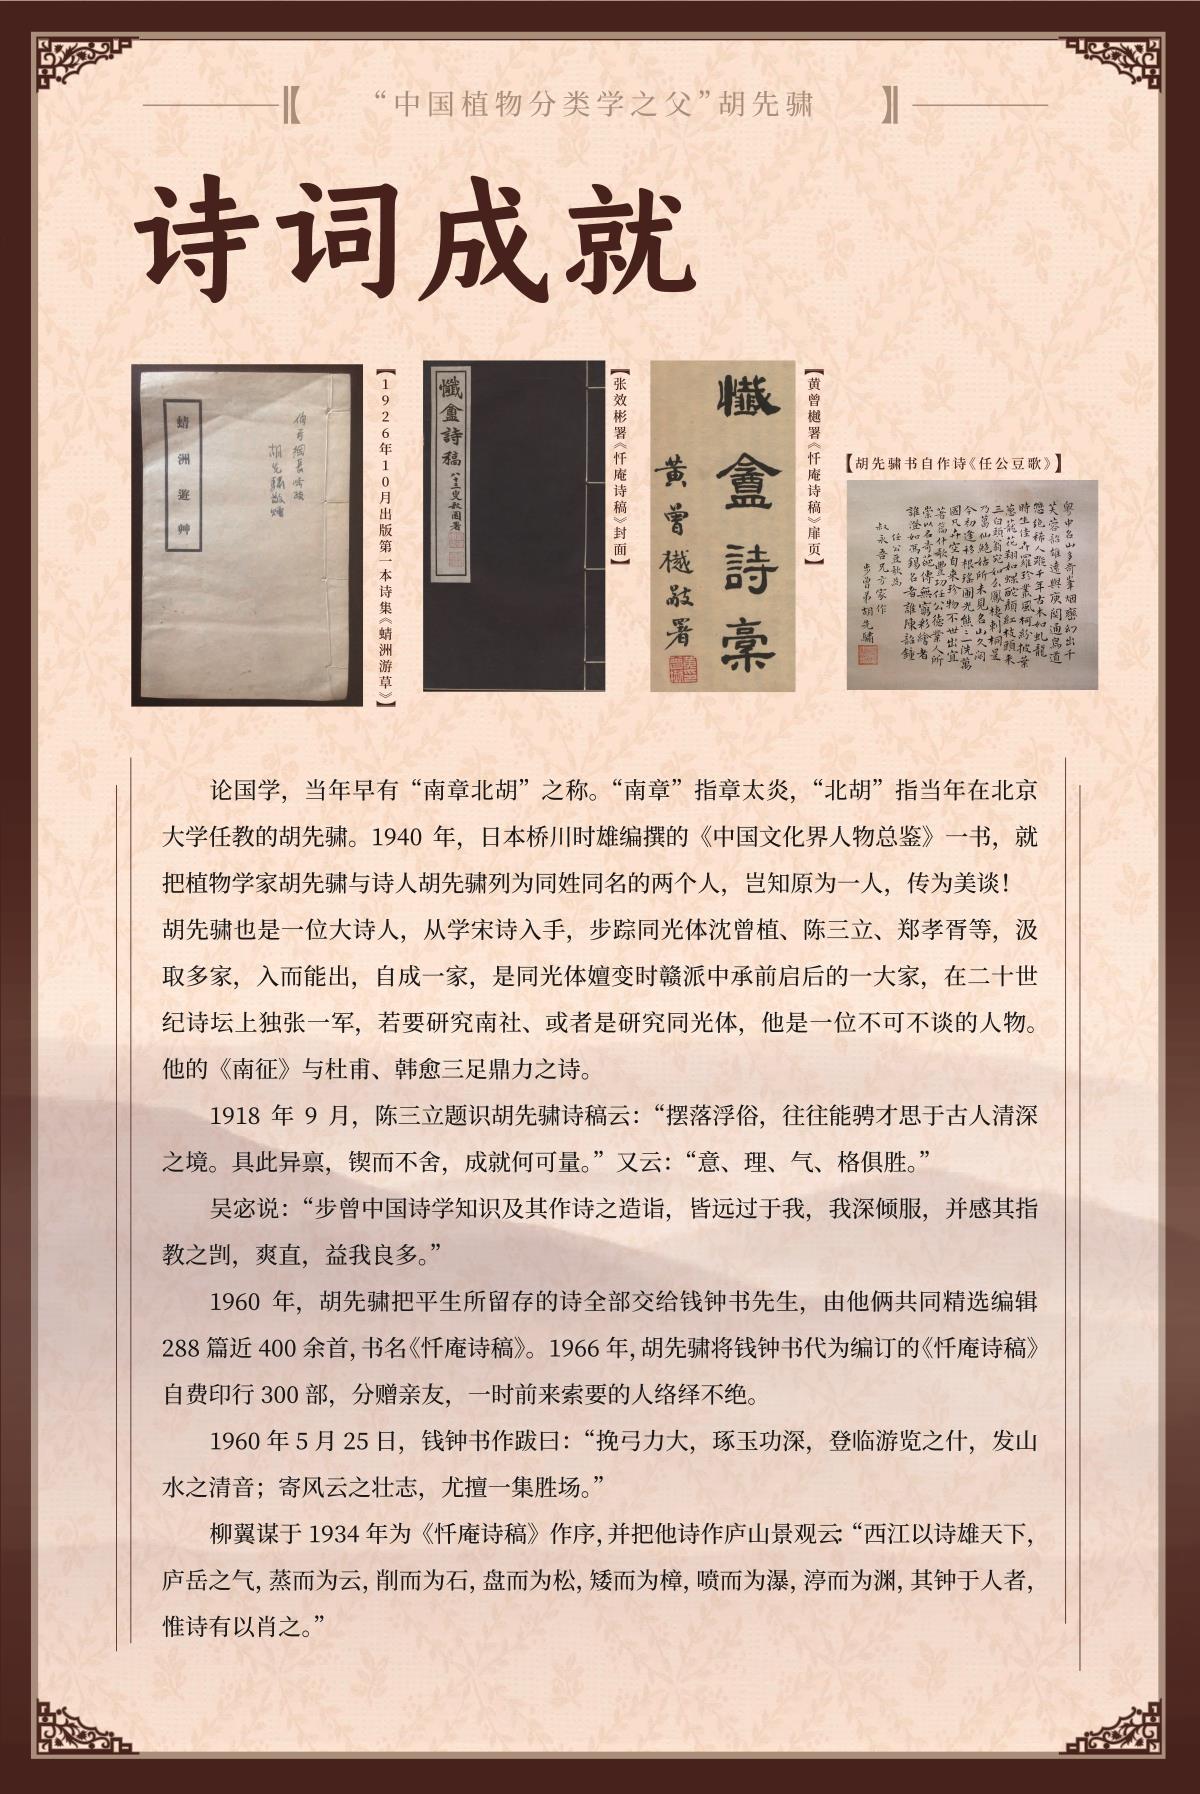 “中国植物分类学之父”胡先骕
诗词成就
蜻洲遊艸
胡先驌敬赠
【1926年10月出版第一本诗集《蜻洲游草》】
懺盦詩稿
八十三叟敬圃署
【张效彬署《忏庵诗稿》封面】
懺盦詩稾
黄曾樾敬署
【黄曾樾署《忏庵诗稿》扉页】
【胡先骕书自作诗《任公豆歌》】
论国学，当年早有“南章北胡”之称。“南章”指章太炎，“北胡”指当年在北京
大学任教的胡先骕。1940 年，日本桥川时雄编撰的《中国文化界人物总鉴》一书，就
把植物学家胡先骕与诗人胡先骕列为同姓同名的两个人，岂知原为一人，传为美谈！
胡先骕也是一位大诗人，从学宋诗入手，步踪同光体沈曾植、陈三立、郑孝胥等，汲
取多家，入而能出，自成一家，是同光体嬗变时赣派中承前启后的一大家，在二十世
纪诗坛上独张一军，若要研究南社、或者是研究同光体，他是一位不可不谈的人物。
他的《南征》与杜甫、韩愈三足鼎力之诗。
1918 年 9 月，陈三立题识胡先骕诗稿云：“摆落浮俗，往往能骋才思于古人清深
之境。具此异禀，锲而不舍，成就何可量。”又云：“意、理、气、格俱胜。”
吴宓说：“步曾中国诗学知识及其作诗之造诣，皆远过于我，我深倾服，并感其指
教之剀，爽直，益我良多。”
1960 年，胡先骕把平生所留存的诗全部交给钱钟书先生，由他俩共同精选编辑
288 篇近 400 余首，书名《忏庵诗稿》。1966 年，胡先骕将钱钟书代为编订的《忏庵诗稿》
自费印行 300 部，分赠亲友，一时前来索要的人络绎不绝。
1960 年 5 月 25 日，钱钟书作跋曰：“挽弓力大，琢玉功深，登临游览之什，发山
水之清音；寄风云之壮志，尤擅一集胜场。”
柳翼谋于 1934 年为《忏庵诗稿》作序，并把他诗作庐山景观云：“西江以诗雄天下，
庐岳之气，蒸而为云，削而为石，盘而为松，矮而为樟，喷而为瀑，渟而为渊，其钟于人者，
惟诗有以肖之。”